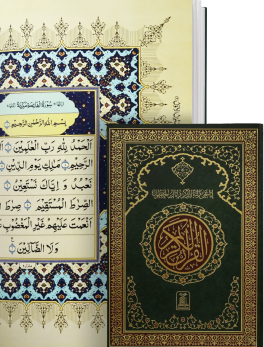 بِسْمِ اللّٰهِ الرَّحْمٰنِ الرَّحِيْمِ
اَلْحَمْدُ لِلّٰهِ رَبِّ الْعٰلَمِيْنَ
الرَّحِيْمِ مٰلِكِ يَوْمِ الدِّيْنِ
نَعْبُدُ وَ اِيَّاكَ نَسْتَعِيْنُ
الصِّرَاطَ الْمُسْتَقِيْمَ صِرَاطَ
اَنْعَمْتَ عَلَيْهِمْ غَيْرِ الْمَغْضُوْبِ
وَلَا الضَّالِّيْنَ
القرآن الكريم